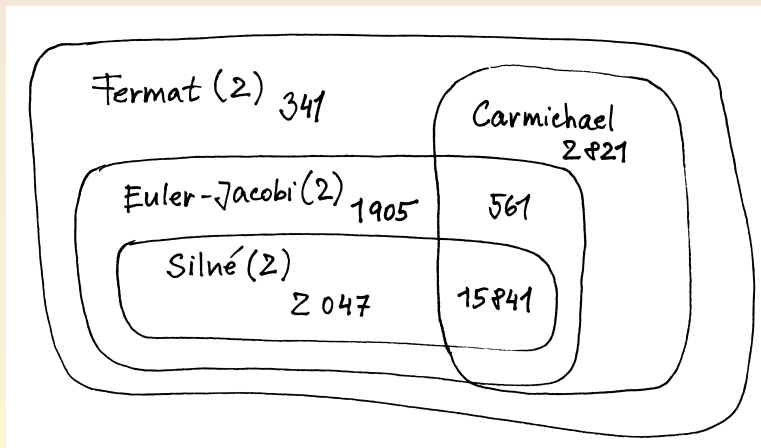 Fermat (2) 341
Carmichael
2821
Euler-Jacobi (2) 1905
561
Silné (2)
2 047
15841